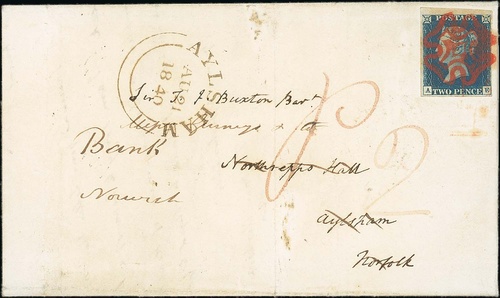 POSTAGE
TWO PENCE
A
AYLSHAM
AU 21
1840
Sir T. F. Buxton Bart
Bank
Northrepps Hall
Norwich
Aylsham
Norfolk